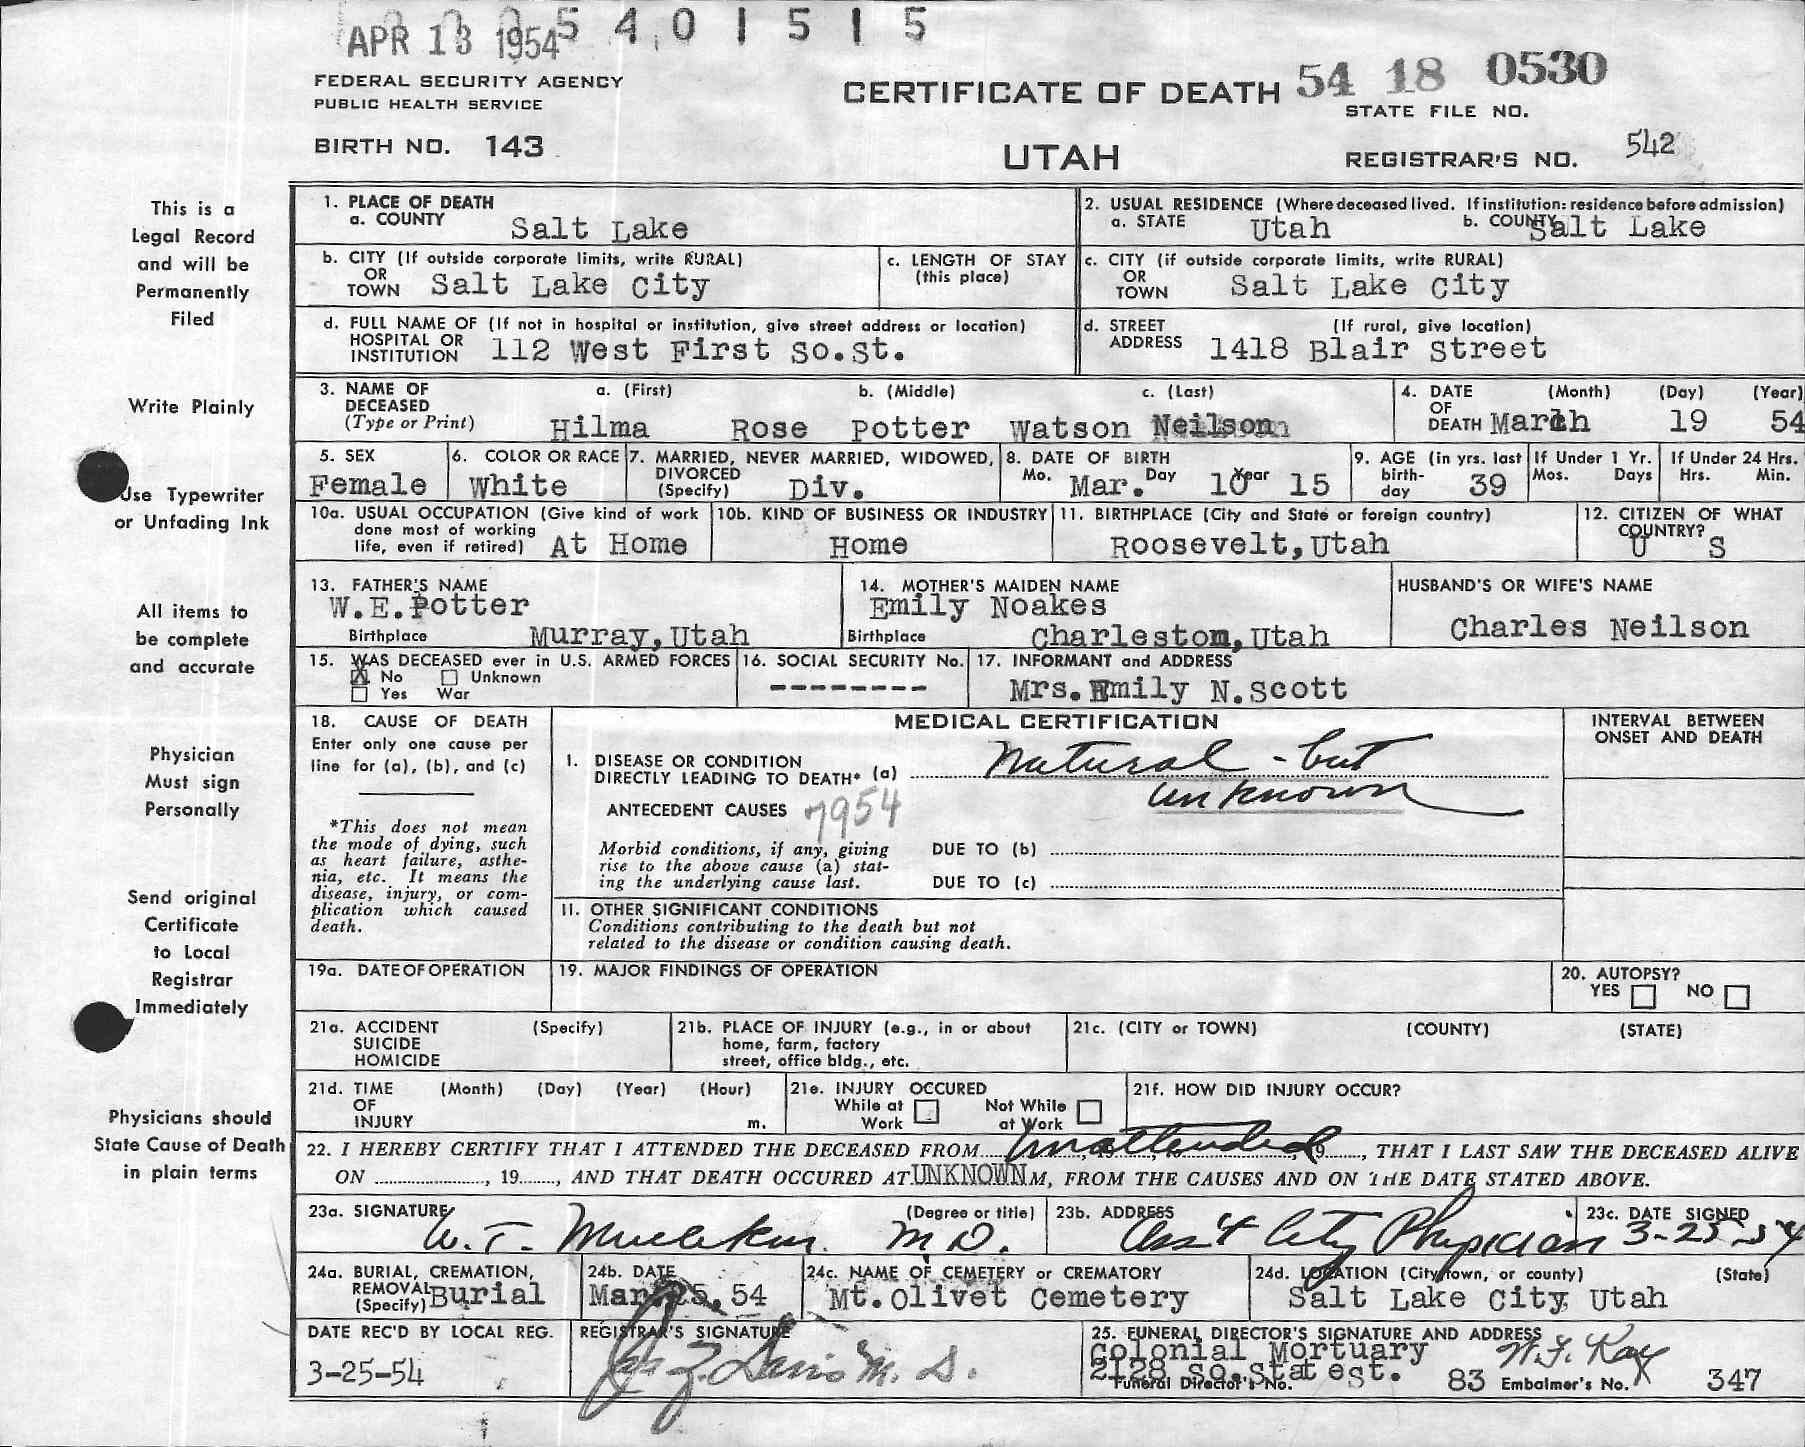 APR 13 1954 5 4 0 1 5 1 5
FEDERAL SECURITY AGENCY
PUBLIC HEALTH SERVICE
CERTIFICATE OF DEATH 54 18 0530
STATE FILE NO.
BIRTH NO. 143
UTAH
REGISTRAR'S NO. 542
This is a
Legal Record
and will be
Permanently
Filed
Write Plainly
Use Typewriter
or Unfading Ink
All items to
be complete
and accurate
Physician
Must sign
Personally
Send original
Certificate
to Local
Registrar
Immediately
Physicians should
State Cause of Death
in plain terms
1. PLACE OF DEATH
a. COUNTY Salt Lake
2. USUAL RESIDENCE (Where deceased lived. If institution: residence before admission)
a. STATE Utah b. COUNTY Salt Lake
b. CITY (If outside corporate limits, write RURAL)
OR
TOWN Salt Lake City
c. LENGTH OF STAY
(this place)
c. CITY (if outside corporate limits, write RURAL)
OR
TOWN Salt Lake City
d. FULL NAME OF (If not in hospital or institution, give street address or location)
HOSPITAL OR
INSTITUTION 112 West First So.St.
d. STREET (If rural, give location)
ADDRESS 1418 Blair Street
3. NAME OF a. (First) b. (Middle) c. (Last)
DECEASED
(Type or Print) Hilma Rose Potter Watson Neilson
4. DATE (Month) (Day) (Year)
OF
DEATH March 19 54
5. SEX
Female
6. COLOR OR RACE
White
7. MARRIED, NEVER MARRIED, WIDOWED,
DIVORCED
(Specify) Div.
8. DATE OF BIRTH
Mo. Day Year
Mar. 10 15
9. AGE (in yrs. last
birth-
day 39
If Under 1 Yr.
Mos. Days
If Under 24 Hrs.
Hrs. Min.
10a. USUAL OCCUPATION (Give kind of work
done most of working
life, even if retired) At Home
10b. KIND OF BUSINESS OR INDUSTRY
Home
11. BIRTHPLACE (City and State or foreign country)
Roosevelt, Utah
12. CITIZEN OF WHAT
COUNTRY?
U S
13. FATHER'S NAME
W.E.Potter
Birthplace Murray, Utah
14. MOTHER'S MAIDEN NAME
Emily Noakes
Birthplace Charleston, Utah
HUSBAND'S OR WIFE'S NAME
Charles Neilson
15. WAS DECEASED ever in U.S. ARMED FORCES
X No Unknown
Yes War
16. SOCIAL SECURITY No.
--------
17. INFORMANT and ADDRESS
Mrs. Emily N. Scott
18. CAUSE OF DEATH
Enter only one cause per
line for (a), (b), and (c)
*This does not mean
the mode of dying, such
as heart failure, asthe-
nia, etc. It means the
disease, injury, or com-
plication which caused
death.
MEDICAL CERTIFICATION
I. DISEASE OR CONDITION
DIRECTLY LEADING TO DEATH* (a) Natural - but
unknown
ANTECEDENT CAUSES 7954
Morbid conditions, if any, giving
rise to the above cause (a) stat-
ing the underlying cause last.
DUE TO (b)
DUE TO (c)
II. OTHER SIGNIFICANT CONDITIONS
Conditions contributing to the death but not
related to the disease or condition causing death.
INTERVAL BETWEEN
ONSET AND DEATH
19a. DATE OF OPERATION
19. MAJOR FINDINGS OF OPERATION
20. AUTOPSY?
YES NO
21a. ACCIDENT (Specify)
SUICIDE
HOMICIDE
21b. PLACE OF INJURY (e.g., in or about
home, farm, factory
street, office bldg., etc.
21c. (CITY or TOWN) (COUNTY) (STATE)
21d. TIME (Month) (Day) (Year) (Hour)
OF
INJURY m.
21e. INJURY OCCURED
While at Work Not While at Work
21f. HOW DID INJURY OCCUR?
22. I HEREBY CERTIFY THAT I ATTENDED THE DECEASED FROM unattended 19......, THAT I LAST SAW THE DECEASED ALIVE
ON ............, 19......, AND THAT DEATH OCCURED AT UNKNOWN M, FROM THE CAUSES AND ON THE DATE STATED ABOVE.
23a. SIGNATURE (Degree or title)
W. T. M.D.
23b. ADDRESS
Ass't City Physician
23c. DATE SIGNED
3-25-54
24a. BURIAL, CREMATION,
REMOVAL
(Specify) Burial
24b. DATE
Mar. 25, 54
24c. NAME OF CEMETERY or CREMATORY
Mt. Olivet Cemetery
24d. LOCATION (City, town, or county) (State)
Salt Lake City Utah
DATE REC'D BY LOCAL REG.
3-25-54
REGISTRAR'S SIGNATURE
Davis M. D.
25. FUNERAL DIRECTOR'S SIGNATURE AND ADDRESS
Colonial Mortuary
2128 So. State st.
Funeral Director's No. 83 Embalmer's No. 347